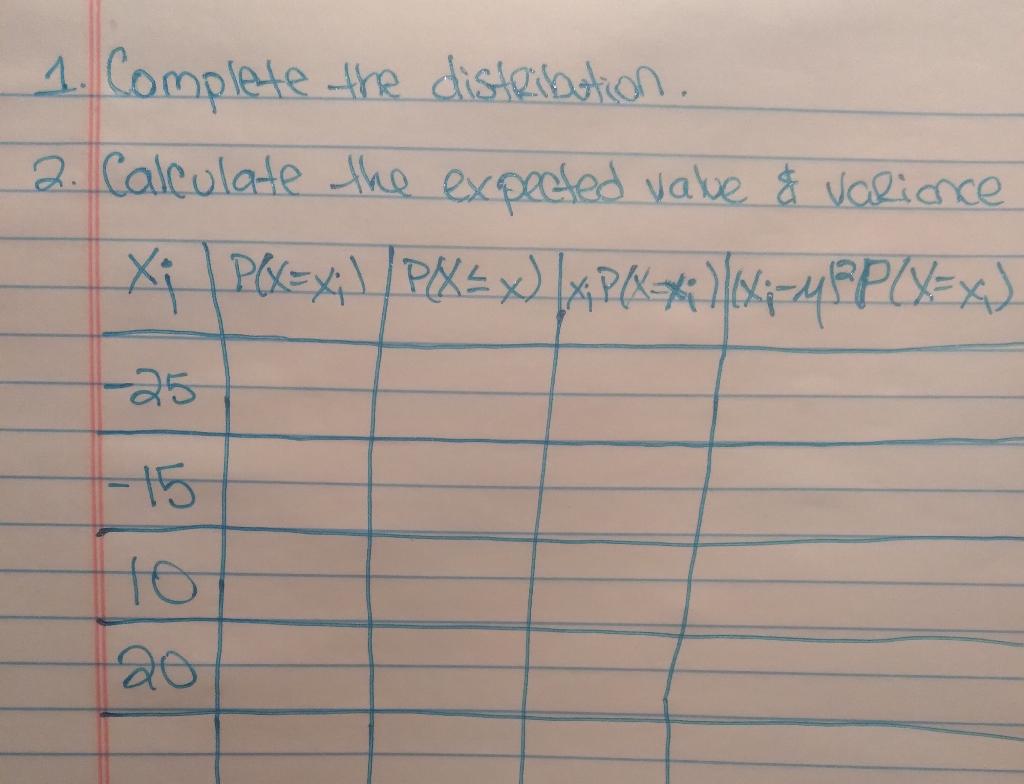 1. Complete the distribution.
2. Calculate the expected value & variance
Xi | P(X=xi) | P(X≤x) | xi P(X=xi) | (xi-μ)²P(X=xi)
-25
-15
10
20